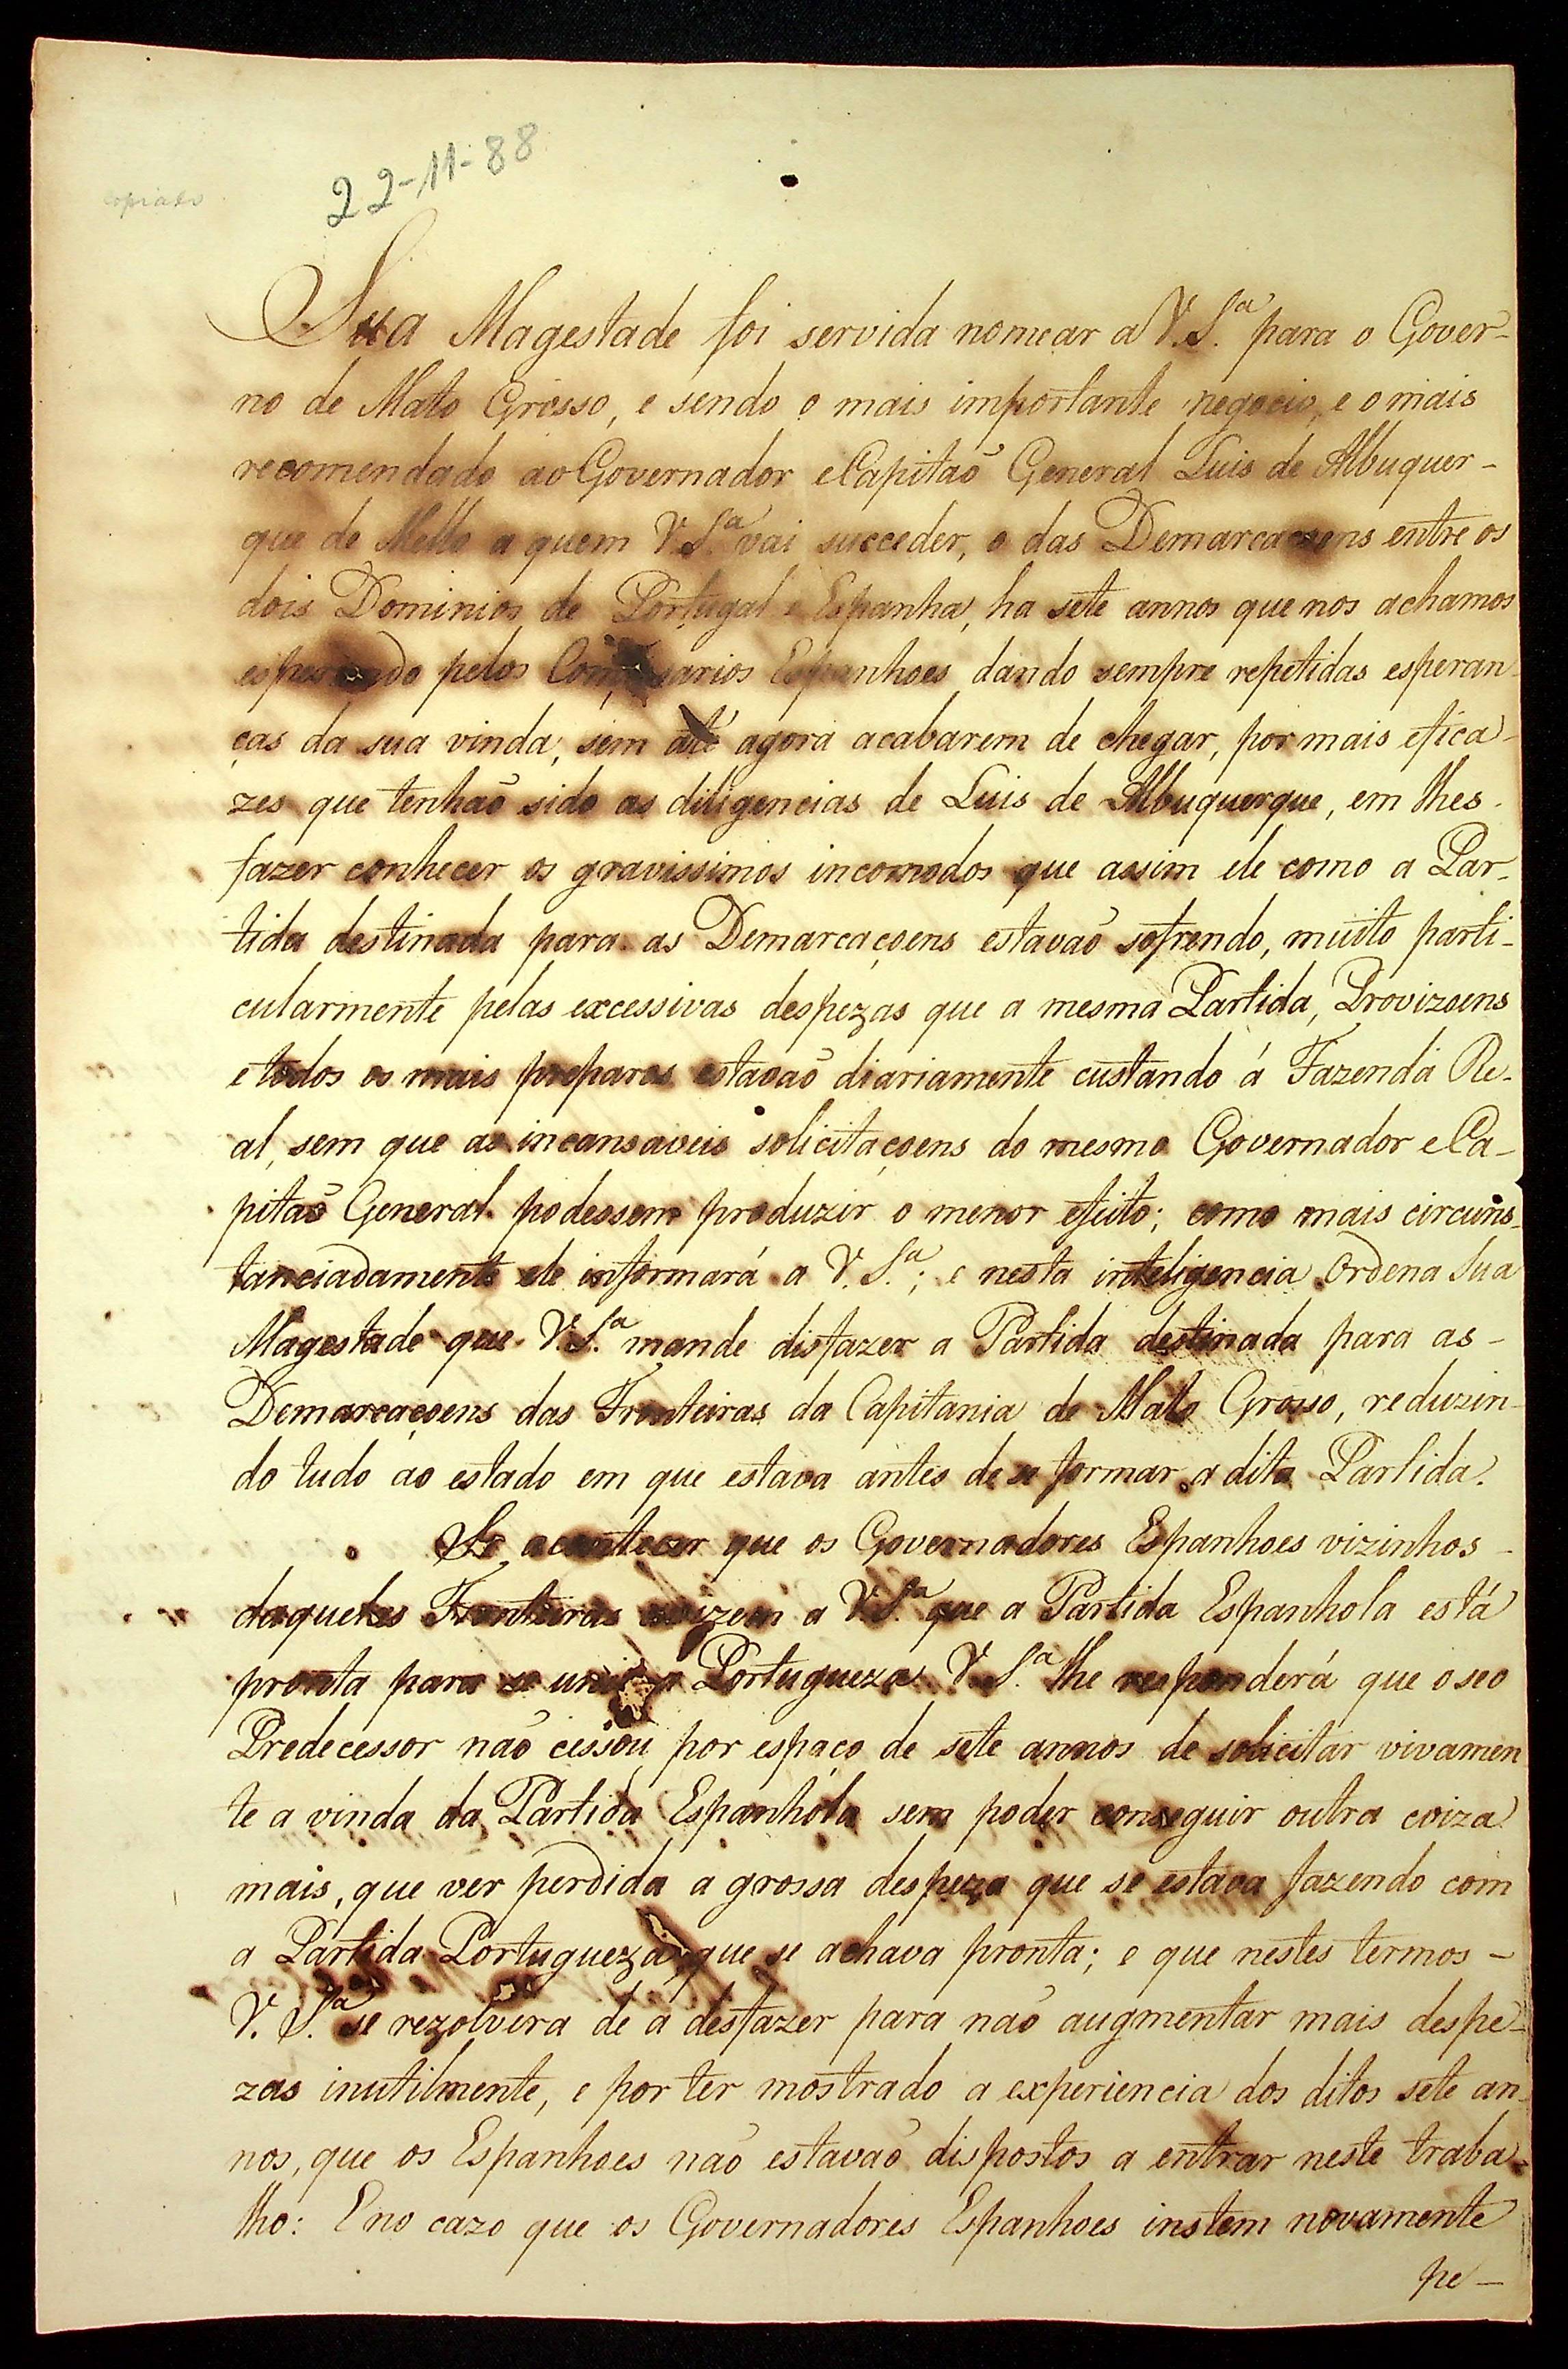 copiado
22-11-88
Sua Magestade foi servida nomear a V. S.ª para o Gover-
no de Mato Grosso, e sendo o mais importante negocio, e o mais
recomendado ao Governador e Capitaõ General Luis de Albuquer-
que de Mello a quem V. S.ª vai succeder, o das Demarcaçoens entre os
dois Dominios de Portugal e Espanha, ha sete annos que nos achamos
esperando pelos Comissarios Espanhoes, dando sempre repetidas esperan
ças da sua vinda, sem até agora acabarem de chegar, por mais efica-
zes que tenhaõ sido as diligencias de Luis de Albuquerque, em lhes
fazer conhecer os gravissimos incomodos que assim ele como a Par-
tida destinada para as Demarcaçoens estavaõ sofrendo, muito parti-
cularmente pelas excessivas despezas que a mesma Partida, Provizoens
e todos os mais preparos estavaõ diariamente custando á Fazenda Re-
al, sem que as incansaveis solicitaçoens do mesmo Governador e Ca-
pitaõ General podessem produzir o menor efeito; como mais circuns-
tanciadamente ele informará a V. S.ª; e nesta inteligencia Ordena Sua
Magestade que V. S.ª mande disfazer a Partida destinada para as -
Demarcaçoens das Fronteiras da Capitania de Mato Grosso, reduzin-
do tudo ao estado em que estava antes de se formar a dita Partida.
Se acontecer que os Governadores Espanhoes vizinhos -
daquelas Fronteiras avizem a V. S.ª que a Partida Espanhola está
pronta para se unir a Portugueza V. S.ª lhe responderá que o seo
Predecessor naõ cessou por espaço de sete annos de solicitar vivamen
te a vinda da Partida Espanhola sem poder conseguir outra coiza
mais, que ver perdida a grossa despeza que se estava fazendo com
a Partida Portugueza, que se achava pronta; e que nestes termos -
V. S.ª se rezolvera de a desfazer para naõ augmentar mais despe-
zas inutilmente, e por ter mostrado a experiencia dos ditos sete an-
nos, que os Espanhoes naõ estavaõ dispostos a entrar neste traba-
lho: E no cazo que os Governadores Espanhoes instem novamente
pe-